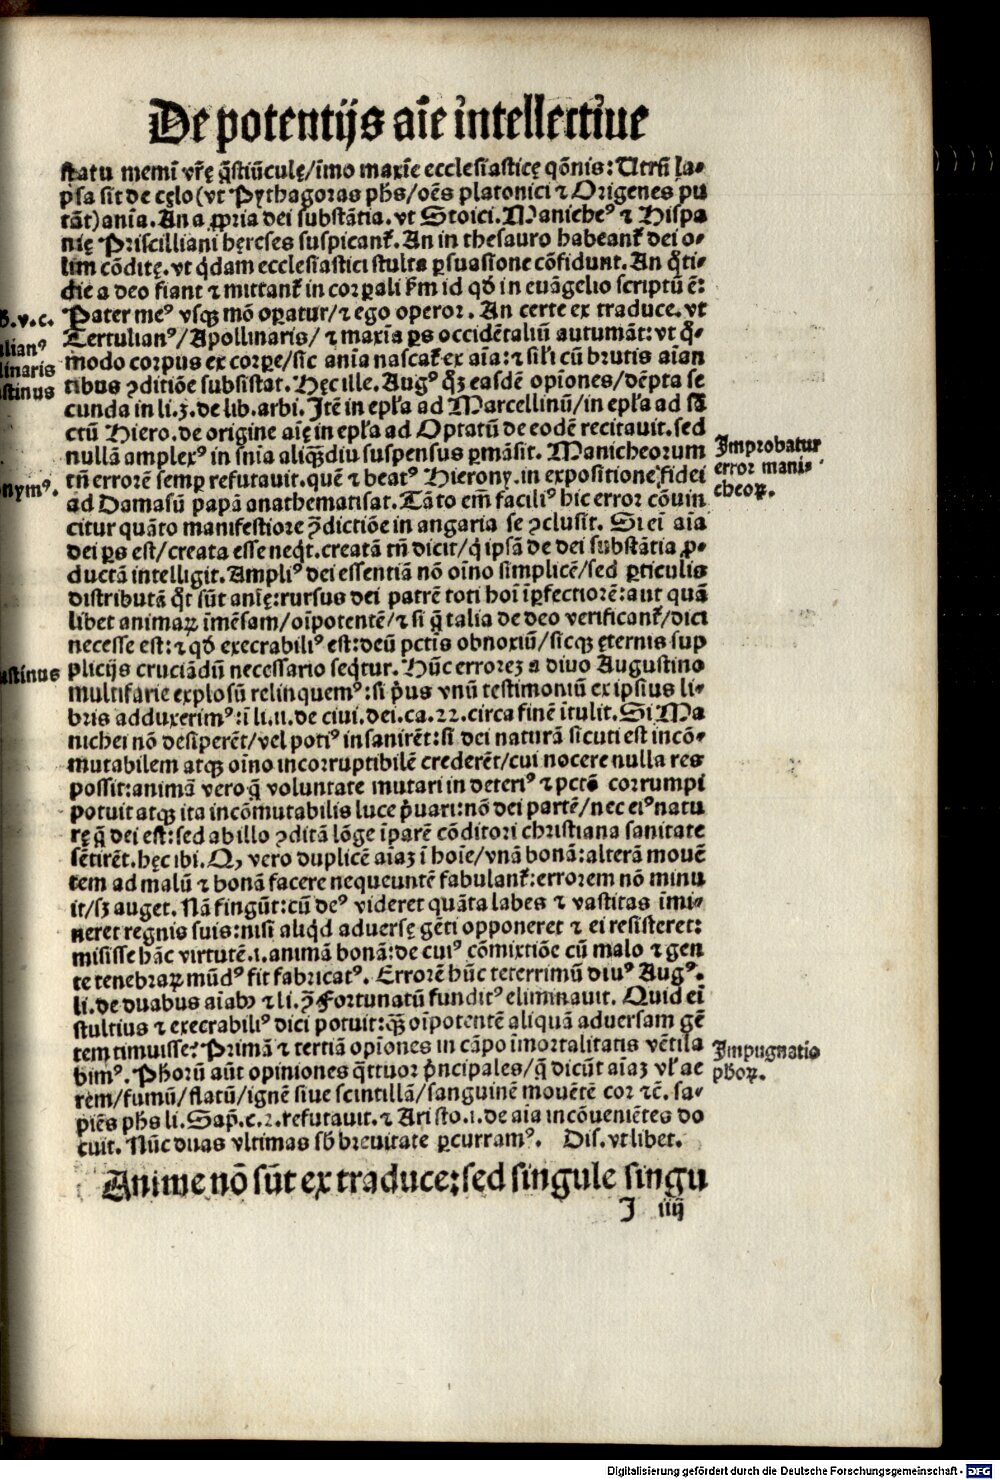 De potentijs aīe intellectiue
statu memī vr̄ę q̄stiūculę/imo maxīe ecclesiasticę qōnis: Utrū la⸗
psa sit de cęlo (vt Pythagoras phs/oēs platonici ⁊ Origenes pu
tāt) anīa. An a ꝓpria dei substātia. vt Stoici. Manicheꝰ ⁊ Hispa
nię Priscilliani hęreses suspicant̄. An in thesauro habeant̄ dei o⸗
lim cōditę. vt qdam ecclesiastici stulta ꝑsuasione cōfidunt. An q̄ti⸗
die a deo fiant ⁊ mittant̄ in corꝑali k̄m id qd in euāgelio scriptū ē:
Pater meꝰ vsqꝫ mō oꝑatur/⁊ ego operor. An certe ex traduce. vt
Tertulianꝰ/Apollinaris/⁊ maxīa ꝑs occidētaliū autumāt: vt q̄⸗
modo corpus ex corꝑe/sic anīa nascat̄ ex aīa: ⁊ sil'i cū brutis aīan
tibus ꝯditiōe subsistat. Hęc ille. Augꝰ q̄ꝫ easdē opiones/dēpta se
cunda in li.3. de lib. arbi. Itē in epl'a ad Marcellinū/in epl'a ad sā
ctū Hiero. de origine aīę in epl'a ad Optatū de eodē recitauit. sed
nullā amplexꝰ in snīa aliqꝫdiu suspensus ꝑmāsit. Manicheorum
tn̄ errorē semꝑ refutauit. quē ⁊ beatꝰ Hierony. in expositione fidei
ad Damasū papā anathematisat. Tāto em̄ faciliꝰ hic error cōuin
citur quāto manifestiore ꝯ̄dictiōe in angaria se ꝯclusit. Si ei aīa
dei ꝑs est/creata esse neqt. creatā tn̄ dicit/q ipsā de dei substātia ꝓ⸗
ductā intelligit. Ampliꝰ dei essentiā nō oīno simplicē/sed ꝑticulis
distributā q̄t sūt anīę: rursus dei patrē toti hoī īꝑfectiorē: aut quā
libet animaꝝ īmēsam/oīpotentē/⁊ si q̄ talia de deo verificant̄/dici
necesse est: ⁊ qd execrabiliꝰ est: deū pctis obnoxiū/sicqꝫ ęternis sup
plicijs cruciādū necessario seqtur. Hūc errorez a diuo Augustino
multifarie explosū relinquemꝰ: si pꝰus vnū testimoniū ex ipsius li⸗
bris adduxerimꝰ: ī li.11. de ciui. dei. ca. 22. circa finē ītulit. Si Ma
nichei nō desiperēt/vel potiꝰ insanirēt: si dei naturā sicuti est incō⸗
mutabilem atqꝫ oīno incorruptibilē crederēt/cui nocere nulla res
possit: animā vero q̄ voluntate mutari in deteriꝰ ⁊ pctō corrumpi
potuit atqꝫ ita incōmutabilis luce pꝰuari: nō dei partē/nec eiꝰ natu
rę q̄ dei est: sed ab illo ꝯditā lōge īparē cōditori christiana sanitate
sētirēt. hęc ibi. Q, vero duplicē aīaꝫ ī hoīe/vnā bonā: alterā mouē
tem ad malū ⁊ bonā facere nequeuntē fabulant̄: errorem nō minu
it/sꝫ auget. Nā fingūt: cū deꝰ videret quāta labes ⁊ vastitas īmi⸗
neret regnis suis: nisi aliqd aduersę gēti opponeret ⁊ ei resisteret:
misisse hāc virtutē. i. animā bonā: de cuiꝰ cōmixtiōe cū malo ⁊ gen
te tenebraꝝ mūdꝰ fit fabricatꝰ. Errorē hūc teterrimū diuꝰ Augꝰ.
li. de duabus aīabꝫ ⁊ li. ꝯ̄ Fortunatū funditꝰ eliminauit. Quid ei
stultius ⁊ execrabiliꝰ dici potuit: qꝫ oīpotentē aliquā aduersam gē
tem timuisse: Primā ⁊ tertiā opīones in cāpo īmortalitatis vētila
bimꝰ. Phorū aūt opiniones q̄ttuor pꝰncipales/q̄ dicūt aīaꝫ vl' ae
rem/fumū/flatū/ignē siue scintillā/sanguinē mouētē cor ⁊c̄. sa⸗
piēs phs li. Sap̄. c. 2. refutauit. ⁊ Aristo. 1. de aīa incōueniētes do
cuit. Nūc duas vltimas sb breuitate ꝑcurramꝰ. Dis. vtlibet.
Anime nō sūt ex traduce: sed singule singu
I iiij
B.v.c.
ilianꝰ
linaris
stinus
nymꝰ.
ustinus
Improbatur
error mani⸗
cheoꝝ.
Impugnatio
phoꝝ.
Digitalisierung gefördert durch die Deutsche Forschungsgemeinschaft - DFG